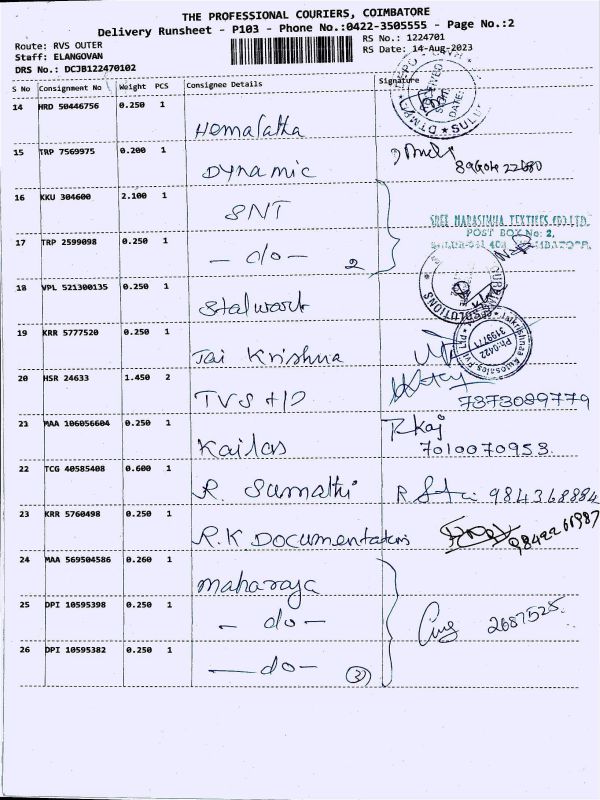 THE PROFESSIONAL COURIERS, COIMBATORE
Delivery Runsheet - P103 - Phone No.:0422-3505555 - Page No.:2
Route: RVS OUTER
RS No.: 1224701
Staff: ELANGOVAN
RS Date: 14-Aug-2023
DRS No.: DCJB122470102
S No Consignment No Weight PCS Consignee Details Signature
14 HRD 50446756 0.250 1
Hemalatha
15 TRP 7569975 0.200 1
Dynamic
16 KKU 304600 2.100 1
SNT
SREE NARASIMHA TEXTILES (P) LTD.
POST BOX No: 2,
17 TRP 2599098 0.250 1
- do - 2
18 VPL 521300135 0.250 1
Stalwart
19 KRR 5777520 0.250 1
Jai Krishna
Jaikrishnaa Autosales Pvt Ltd
Ph:0422
20 HSR 24633 1.450 2
TVS
7373099779
21 MAA 106056604 0.250 1
Kailas
7010070953
22 TCG 40585408 0.600 1
R. Sumathi
23 KRR 5760498 0.250 1
R.K Documentations
24 MAA 569504586 0.260 1
maharaja
25 DPI 10595398 0.250 1
- do -
2687525
26 DPI 10595382 0.250 1
- do - 3